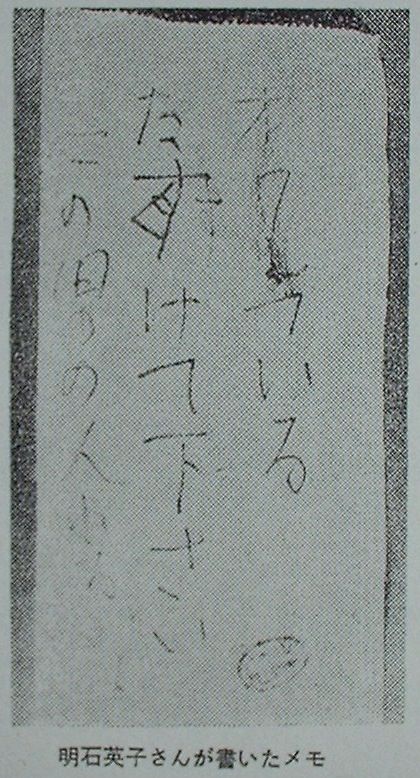 オワレている
たすけて下さい
この男の人
明石英子さんが書いたメモ